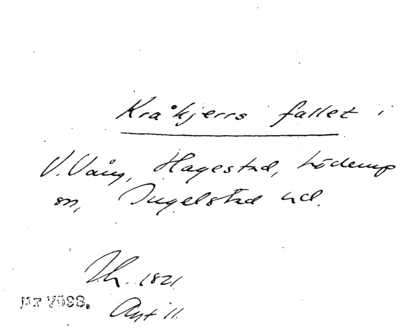 Kråkjerrs fallet i
V. Vång, Hagestad, Löderup
sn, Ingelstad hd.
1821
Nr 7088.